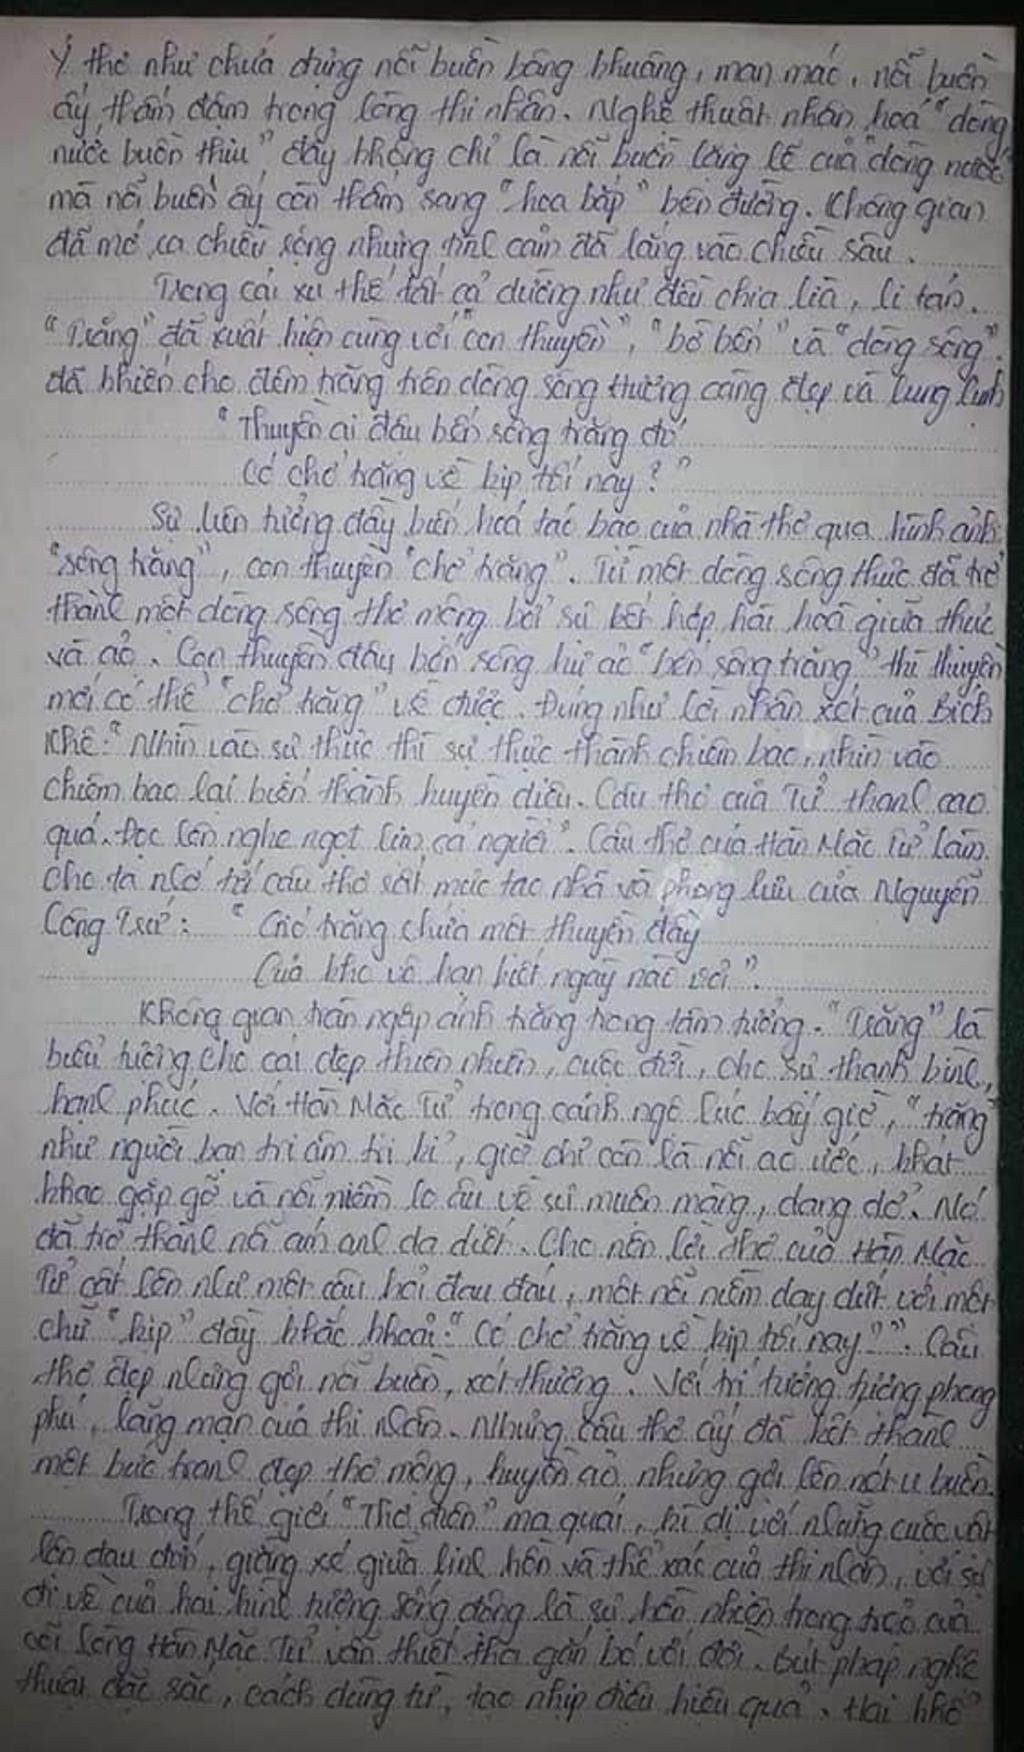 Ý thơ như chứa đựng nỗi buồn bâng khuâng, man mác, nỗi buồn
ấy thấm đậm trong lòng thi nhân. Nghệ thuật nhân hoá "dòng
nước buồn thiu" đây không chỉ là nỗi buồn lặng lẽ của dòng nước
mà nỗi buồn ấy còn thấm sang "hoa bắp" bên đường. Không gian
đã mở ra chiều rộng nhưng tình cảm đã lắng vào chiều sâu.
Trong cái xu thế tất cả dường như đều chia lìa, li tán.
"Trăng" đã xuất hiện cùng với "con thuyền", "bờ bến" và "dòng sông".
đã khiến cho đêm trăng trên dòng sông thương càng đẹp và lung linh
"Thuyền ai đậu bến sông trăng đó
Có chở trăng về kịp tối nay?"
Sự liên tưởng đầy biến hoá táo bạo của nhà thơ qua hình ảnh
"sông trăng", con thuyền "chở trăng". Từ một dòng sông thực đã trở
thành một dòng sông thơ mộng bởi sự kết hợp hài hoà giữa thực
và ảo. Con thuyền đậu bến sông hư ảo "bến sông trăng" thì thuyền
mới có thể "chở trăng" về được. Đúng như lời nhận xét của Bích
Khê: "Nhìn vào sự thực thì sự thực thành chiêm bao, nhìn vào
chiêm bao lại biến thành huyền diệu. Câu thơ của Tử thanh cao
quá. Đọc lên nghe ngọt lịm cả người". Câu thơ của Hàn Mặc Tử làm
cho ta nhớ tới câu thơ rất mực tao nhã và phong lưu của Nguyễn
Công Trứ: "Gió trăng chứa một thuyền đầy
Của kho vô hạn biết ngày nào vơi".
Không gian tràn ngập ánh trăng trong tâm tưởng. "Trăng" là
biểu tượng cho cái đẹp thiên nhiên, cuộc đời, cho sự thanh bình,
hạnh phúc. Với Hàn Mặc Tử trong cảnh ngộ lúc bấy giờ, "trăng"
như người bạn tri âm tri kỉ, giờ chỉ còn là nỗi ao ước, khát
khao gặp gỡ và nỗi niềm lo âu về sự muộn màng, dang dở. Nó
đã trở thành nỗi ám ảnh da diết. Cho nên lời thơ của Hàn Mặc
Tử cất lên như một câu hỏi đau đáu, một nỗi niềm day dứt với một
chữ "kịp" đầy khắc khoải: "Có chở trăng về kịp tối nay?". Câu
thơ đẹp nhưng gợi nỗi buồn, xót thương. Với trí tưởng tượng phong
phú, lãng mạn của thi nhân. Nhưng câu thơ ấy đã kết thành
một bức tranh đẹp thơ mộng, huyền ảo nhưng gợi lên nét u buồn.
Trong thế giới "Thơ điên" ma quái, kì dị với những cuộc vật
lộn đau đớn, giằng xé giữa linh hồn và thể xác của thi nhân, với sự
đi về của hai hình tượng sống động là sự hồn nhiên trong trẻo của
cõi lòng Hàn Mặc Tử vẫn thiết tha gắn bó với đời. Bút pháp nghệ
thuật đặc sắc, cách dùng từ, tạo nhịp điệu hiệu quả. Hai khổ